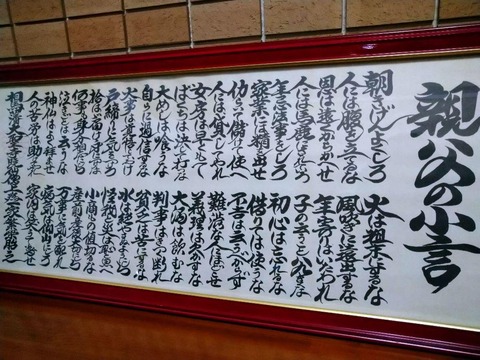 親父の小言
朝きげんよくしろ
人には腹を立てるな
恩は遠くからかくせ
人には馬鹿にされろ
年忌法事をしろ
家業は精出せ
仂いて儲けて使へ
人には貸してやれ
女房は早くもて
ばくちは決して打な
大めしは喰うな
自らに過信するな
大事は覚悟しておけ
戸締に気をつけろ
拾はば届け身につけるな
何事も身分相応にしろ
泣きごとは云うな
神仏はよく拝ませ
人の苦労は助けてやれ
火は粗末にするな
風吹きに遠出するな
年寄りはいたわれ
子の云うこと八九きくな
初心は忘れるな
借りては使うな
不吉は云うべからず
難渋な人にほどこせ
義理は欠かすな
大酒は飲むな
判事はきつく断れ
貧乏は苦にするな
水は絶やさぬようにしろ
怪我と災は恥と思へ
小商ものを値切るな
産前産後大切にしろ
万事に気を配れ
病気は仰山にしろ
家内は笑ふて暮せ
相馬大聖寺暁仙僧正